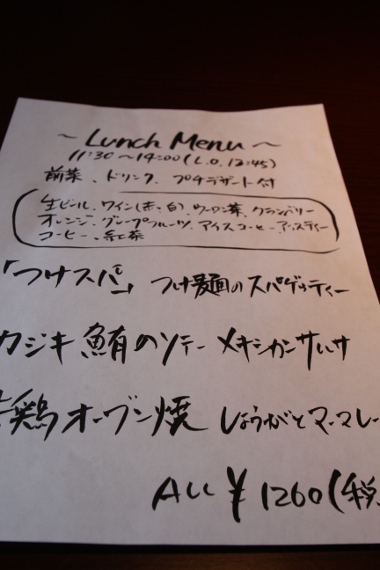 ～ Lunch Menu ～
11:30～14:00(L.O.13:45)
前菜、ドリンク、プチデザート付
生ビール、ワイン(赤・白)、ウーロン茶、クランベリー
オレンジ、グレープフルーツ、アイスコーヒー、アイスティー
コーヒー、紅茶
「つけスパ」 つけ麺のスパゲッティー
カジキ鮪のソテー メキシカンサルサ
鶏オーブン焼 しょうがとマーマレー
ALL ¥1260(税